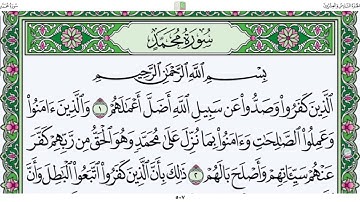 سُورَةُ مُحَمَّدٍ
بِسْمِ اللَّهِ الرَّحْمَٰنِ الرَّحِيمِ
الَّذِينَ كَفَرُوا وَصَدُّوا عَن سَبِيلِ اللَّهِ أَضَلَّ أَعْمَٰلَهُمْ ١ وَالَّذِينَ ءَامَنُوا
وَعَمِلُوا الصَّٰلِحَٰتِ وَءَامَنُوا بِمَا نُزِّلَ عَلَىٰ مُحَمَّدٍ وَهُوَ الْحَقُّ مِن رَّبِّهِمْ كَفَّرَ
عَنْهُمْ سَيِّـَٔاتِهِمْ وَأَصْلَحَ بَالَهُمْ ٢ ذَٰلِكَ بِأَنَّ الَّذِينَ كَفَرُوا اتَّبَعُوا الْبَٰطِلَ وَأَنَّ
٥٠٧